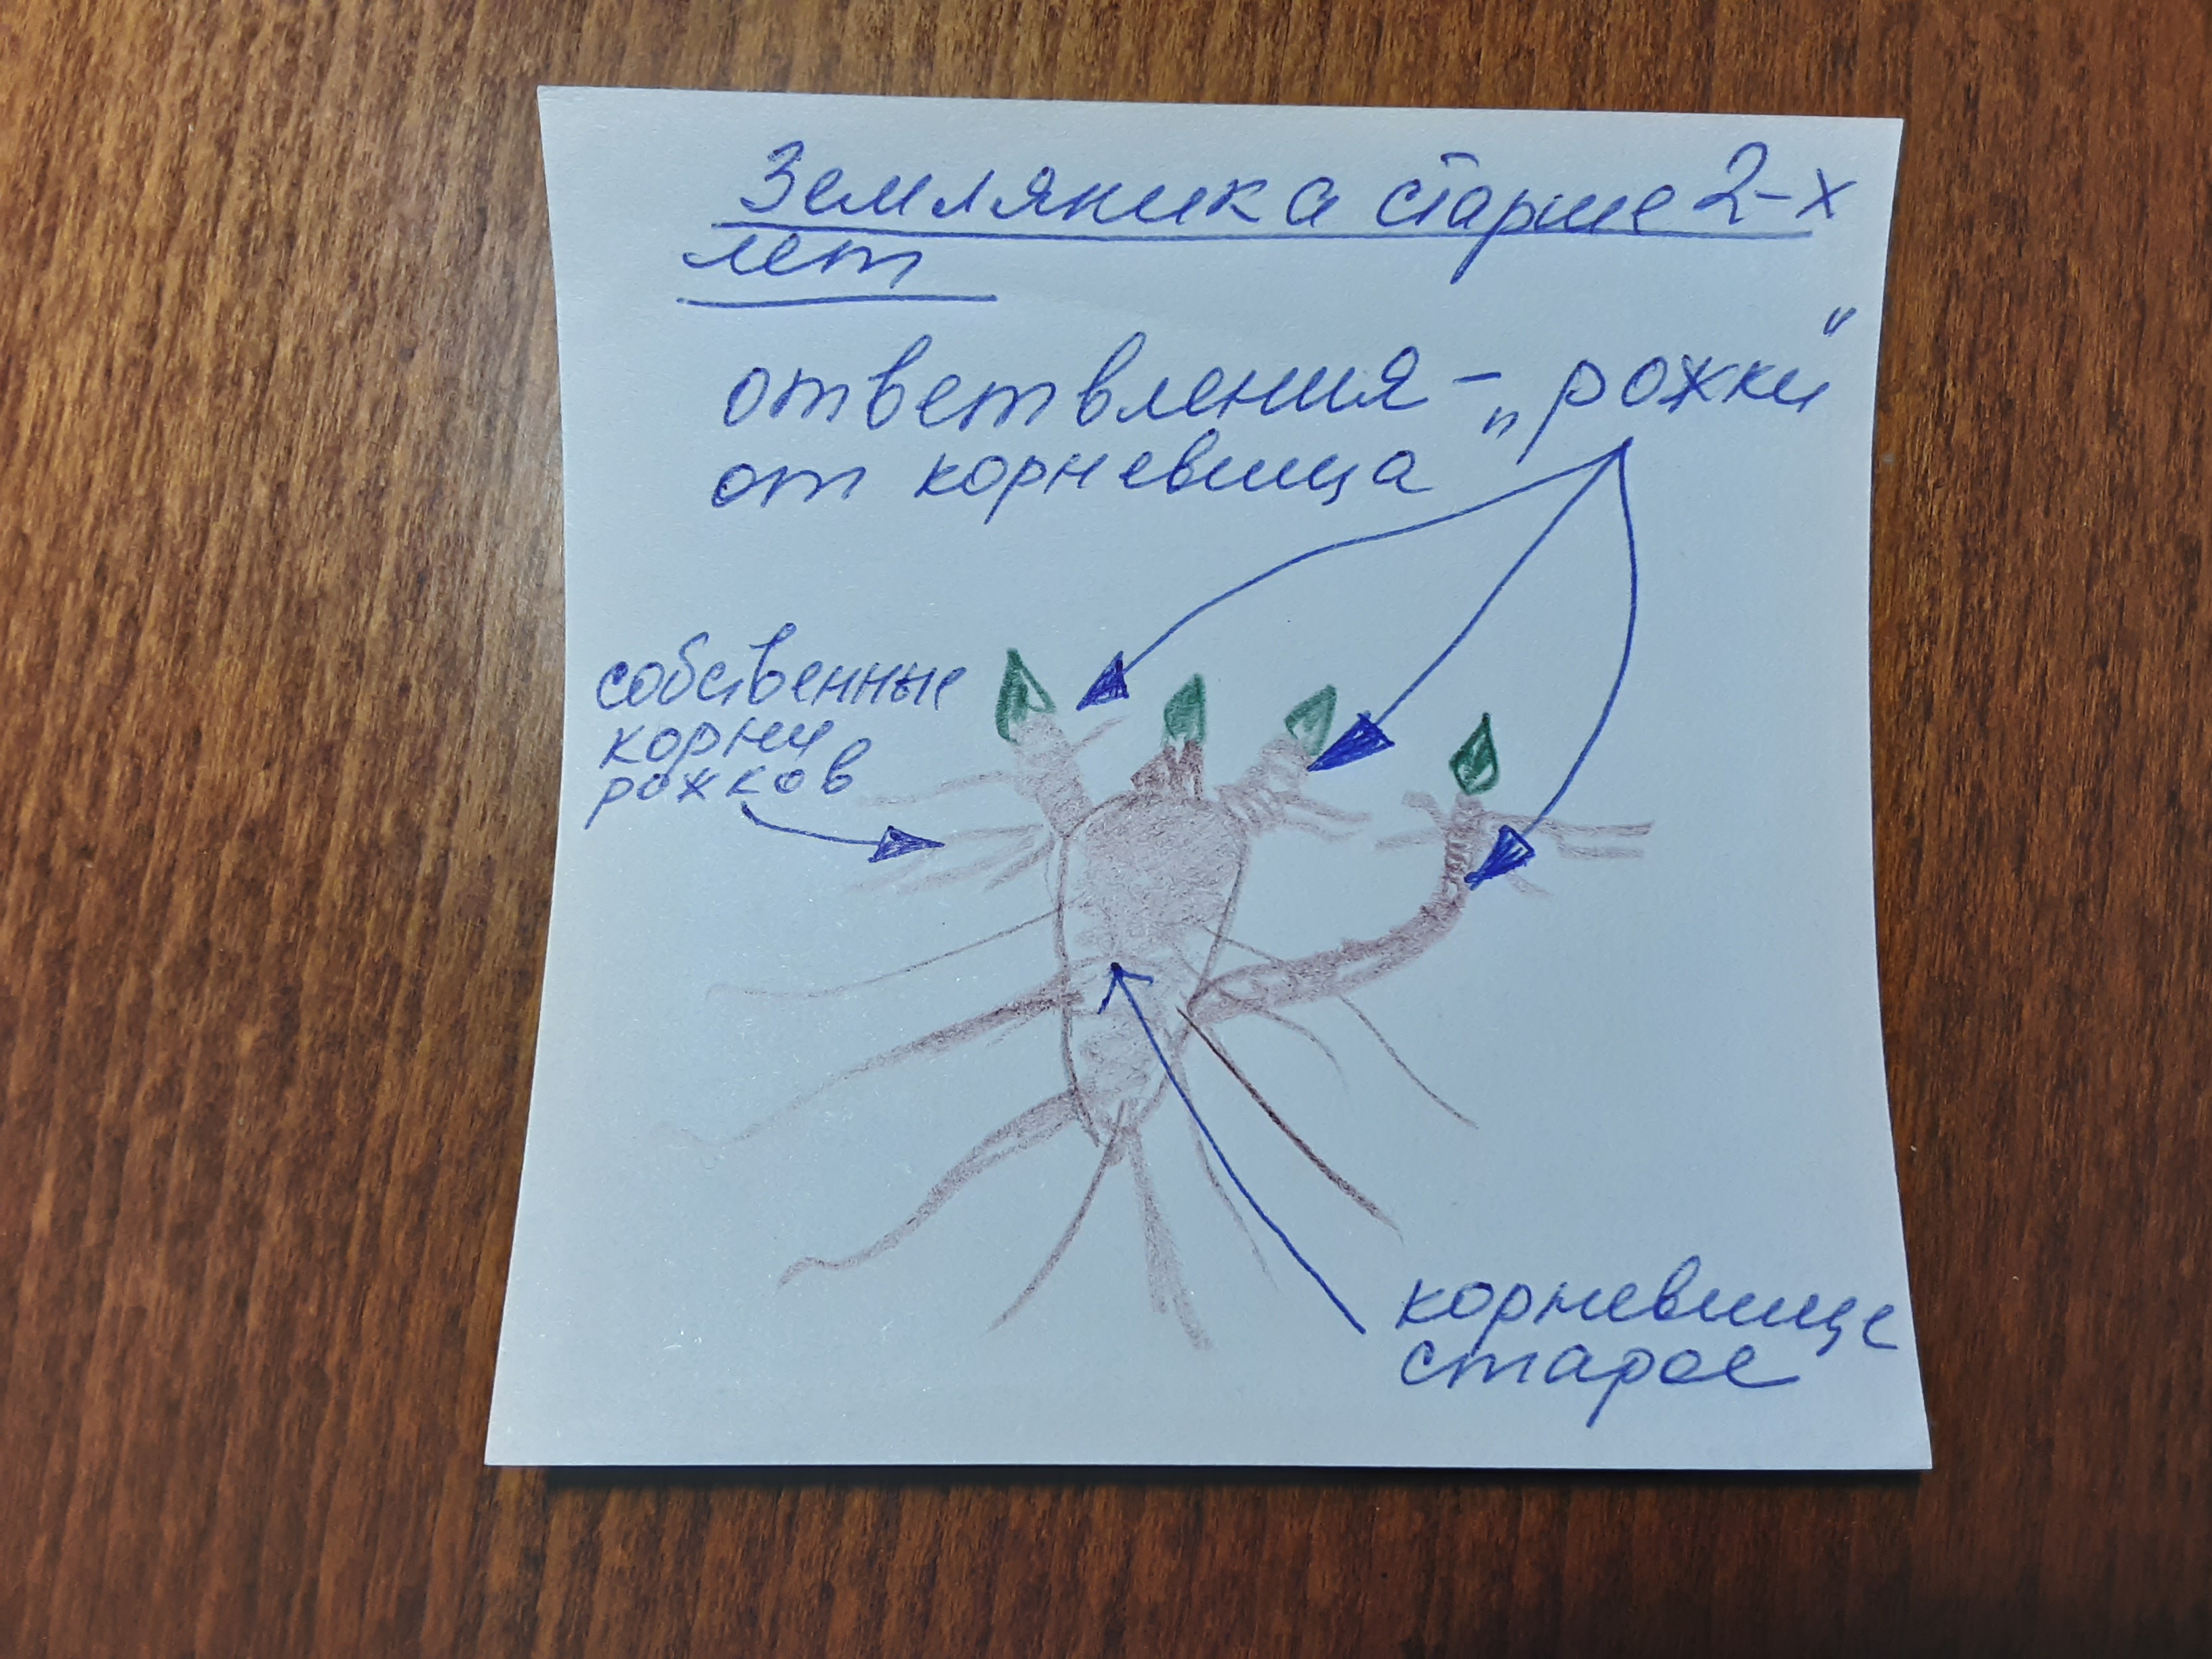 Земляника старше 2-х
лет
ответвления - „рожки"
от корневища
собственные
корни
рожков
корневище
старое